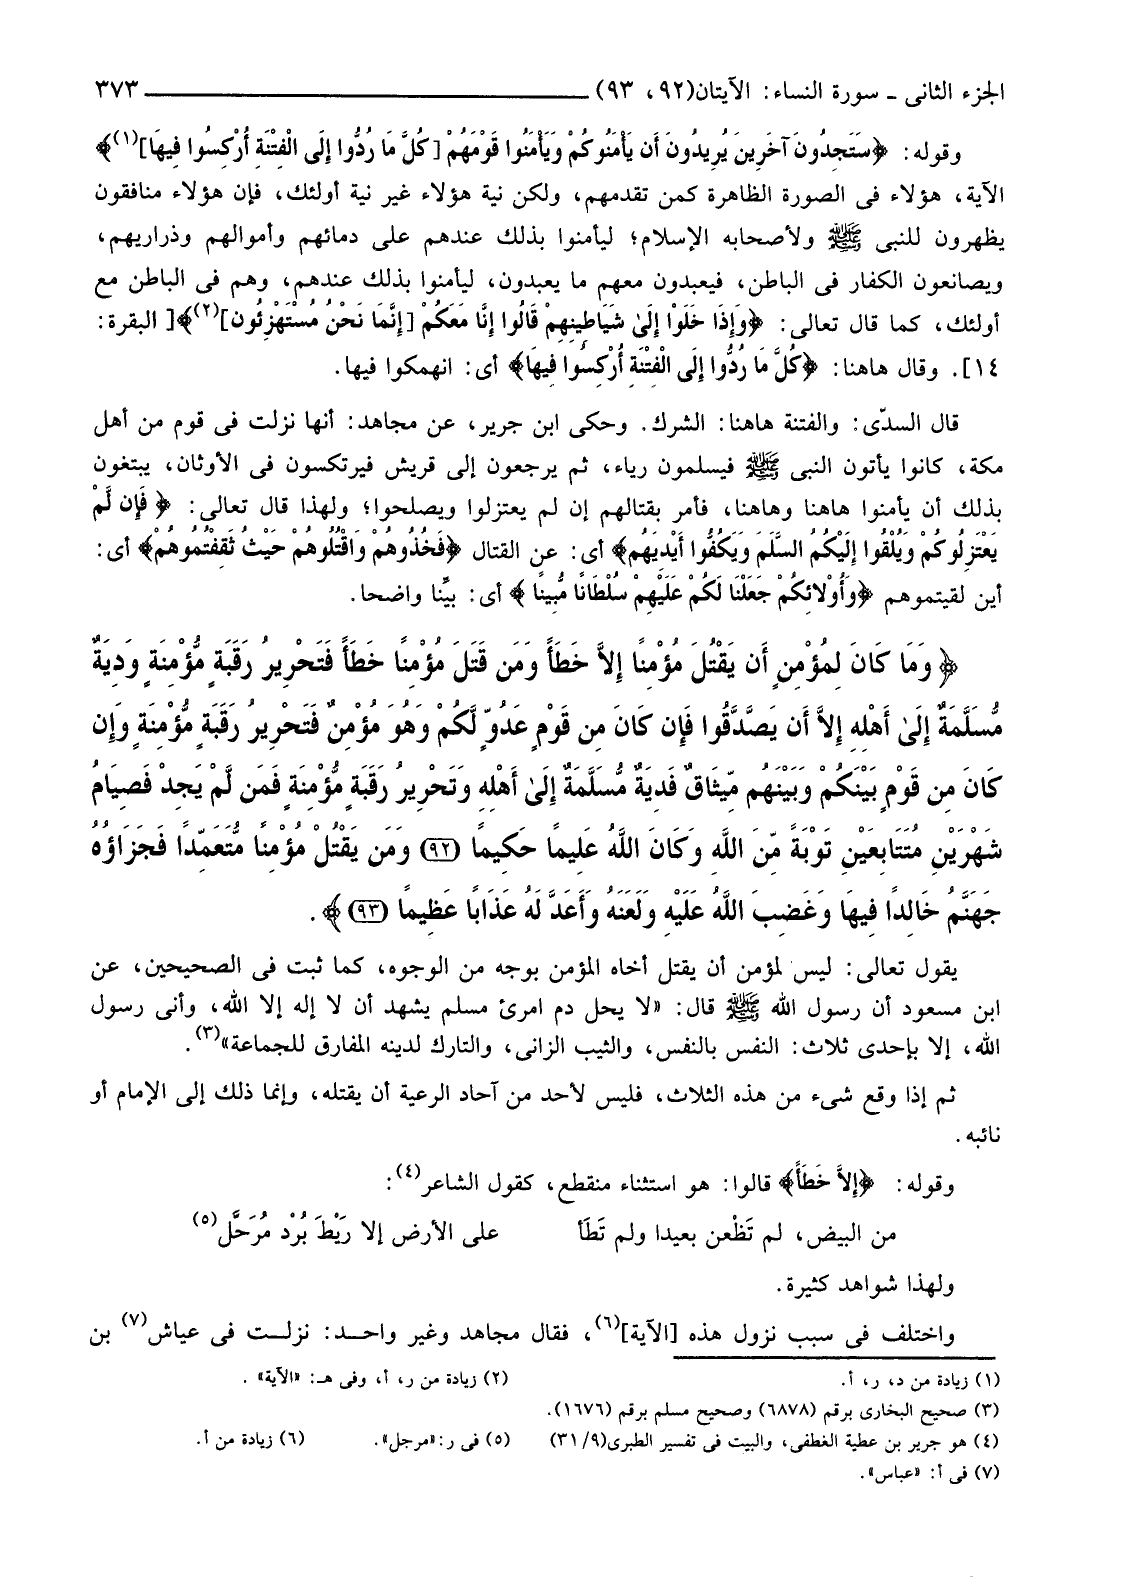 الجزء الثانى ـ سورة النساء: الآيتان(٩٢، ٩٣) ٣٧٣
وقوله: ﴿سَتَجِدُونَ آخَرِينَ يُرِيدُونَ أَن يَأْمَنُوكُمْ وَيَأْمَنُوا قَوْمَهُمْ [كُلَّ مَا رُدُّوا إِلَى الْفِتْنَةِ أُرْكِسُوا فِيهَا](١)﴾
الآية، هؤلاء فى الصورة الظاهرة كمن تقدمهم، ولكن نية هؤلاء غير نية أولئك، فإن هؤلاء منافقون
يظهرون للنبى ﷺ ولأصحابه الإسلام؛ ليأمنوا بذلك عندهم على دمائهم وأموالهم وذراريهم،
ويصانعون الكفار فى الباطن، فيعبدون معهم ما يعبدون، ليأمنوا بذلك عندهم، وهم فى الباطن مع
أولئك، كما قال تعالى: ﴿وَإِذَا خَلَوْا إِلَىٰ شَيَاطِينِهِمْ قَالُوا إِنَّا مَعَكُمْ [إِنَّمَا نَحْنُ مُسْتَهْزِئُونَ](٢)﴾[ البقرة:
١٤]. وقال هاهنا: ﴿كُلَّ مَا رُدُّوا إِلَى الْفِتْنَةِ أُرْكِسُوا فِيهَا﴾ أى: انهمكوا فيها.
قال السدّى: والفتنة هاهنا: الشرك. وحكى ابن جرير، عن مجاهد: أنها نزلت فى قوم من أهل
مكة، كانوا يأتون النبى ﷺ فيسلمون رياء، ثم يرجعون إلى قريش فيرتكسون فى الأوثان، يبتغون
بذلك أن يأمنوا هاهنا وهاهنا، فأمر بقتالهم إن لم يعتزلوا ويصلحوا؛ ولهذا قال تعالى: ﴿ فَإِن لَّمْ
يَعْتَزِلُوكُمْ وَيُلْقُوا إِلَيْكُمُ السَّلَمَ وَيَكُفُّوا أَيْدِيَهُمْ﴾ أى: عن القتال ﴿فَخُذُوهُمْ وَاقْتُلُوهُمْ حَيْثُ ثَقِفْتُمُوهُمْ﴾ أى:
أين لقيتموهم ﴿وَأُوْلَائِكُمْ جَعَلْنَا لَكُمْ عَلَيْهِمْ سُلْطَانًا مُّبِينًا ﴾ أى: بيِّنا واضحا.
﴿ وَمَا كَانَ لِمُؤْمِنٍ أَن يَقْتُلَ مُؤْمِنًا إِلاَّ خَطَأً وَمَن قَتَلَ مُؤْمِنًا خَطَأً فَتَحْرِيرُ رَقَبَةٍ مُّؤْمِنَةٍ وَدِيَةٌ
مُّسَلَّمَةٌ إِلَىٰ أَهْلِهِ إِلاَّ أَن يَصَّدَّقُوا فَإِن كَانَ مِن قَوْمٍ عَدُوٍّ لَّكُمْ وَهُوَ مُؤْمِنٌ فَتَحْرِيرُ رَقَبَةٍ مُّؤْمِنَةٍ وَإِن
كَانَ مِن قَوْمٍ بَيْنَكُمْ وَبَيْنَهُم مِّيثَاقٌ فَدِيَةٌ مُّسَلَّمَةٌ إِلَىٰ أَهْلِهِ وَتَحْرِيرُ رَقَبَةٍ مُّؤْمِنَةٍ فَمَن لَّمْ يَجِدْ فَصِيَامُ
شَهْرَيْنِ مُتَتَابِعَيْنِ تَوْبَةً مِّنَ اللَّهِ وَكَانَ اللَّهُ عَلِيمًا حَكِيمًا (٩٢) وَمَن يَقْتُلْ مُؤْمِنًا مُّتَعَمِّدًا فَجَزَاؤُهُ
جَهَنَّمُ خَالِدًا فِيهَا وَغَضِبَ اللَّهُ عَلَيْهِ وَلَعَنَهُ وَأَعَدَّ لَهُ عَذَابًا عَظِيمًا (٩٣) ﴾.
يقول تعالى: ليس لمؤمن أن يقتل أخاه المؤمن بوجه من الوجوه، كما ثبت فى الصحيحين، عن
ابن مسعود أن رسول الله ﷺ قال: «لا يحل دم امرئ مسلم يشهد أن لا إله إلا الله، وأنى رسول
الله، إلا بإحدى ثلاث: النفس بالنفس، والثيب الزانى، والتارك لدينه المفارق للجماعة»(٣).
ثم إذا وقع شىء من هذه الثلاث، فليس لأحد من آحاد الرعية أن يقتله، وإنما ذلك إلى الإمام أو
نائبه.
وقوله: ﴿إِلاَّ خَطَأً﴾ قالوا: هو استثناء منقطع، كقول الشاعر(٤):
من البيض، لم تَظْعن بعيدا ولم تَطَأ على الأرض إلا رَيْطَ بُرْد مُرَحَّل(٥)
ولهذا شواهد كثيرة.
واختلف فى سبب نزول هذه [الآية](٦)، فقال مجاهد وغير واحـد: نزلـت فى عياش(٧) بن
(١) زيادة من د، ر، أ. (٢) زيادة من ر، أ، وفى هـ: «الآية» .
(٣) صحيح البخارى برقم (٦٨٧٨) وصحيح مسلم برقم (١٦٧٦).
(٤) هو جرير بن عطية الغطفى، والبيت فى تفسير الطبرى(٣١/٩) (٥) فى ر:«مرجل». (٦) زيادة من أ.
(٧) فى أ: «عباس».